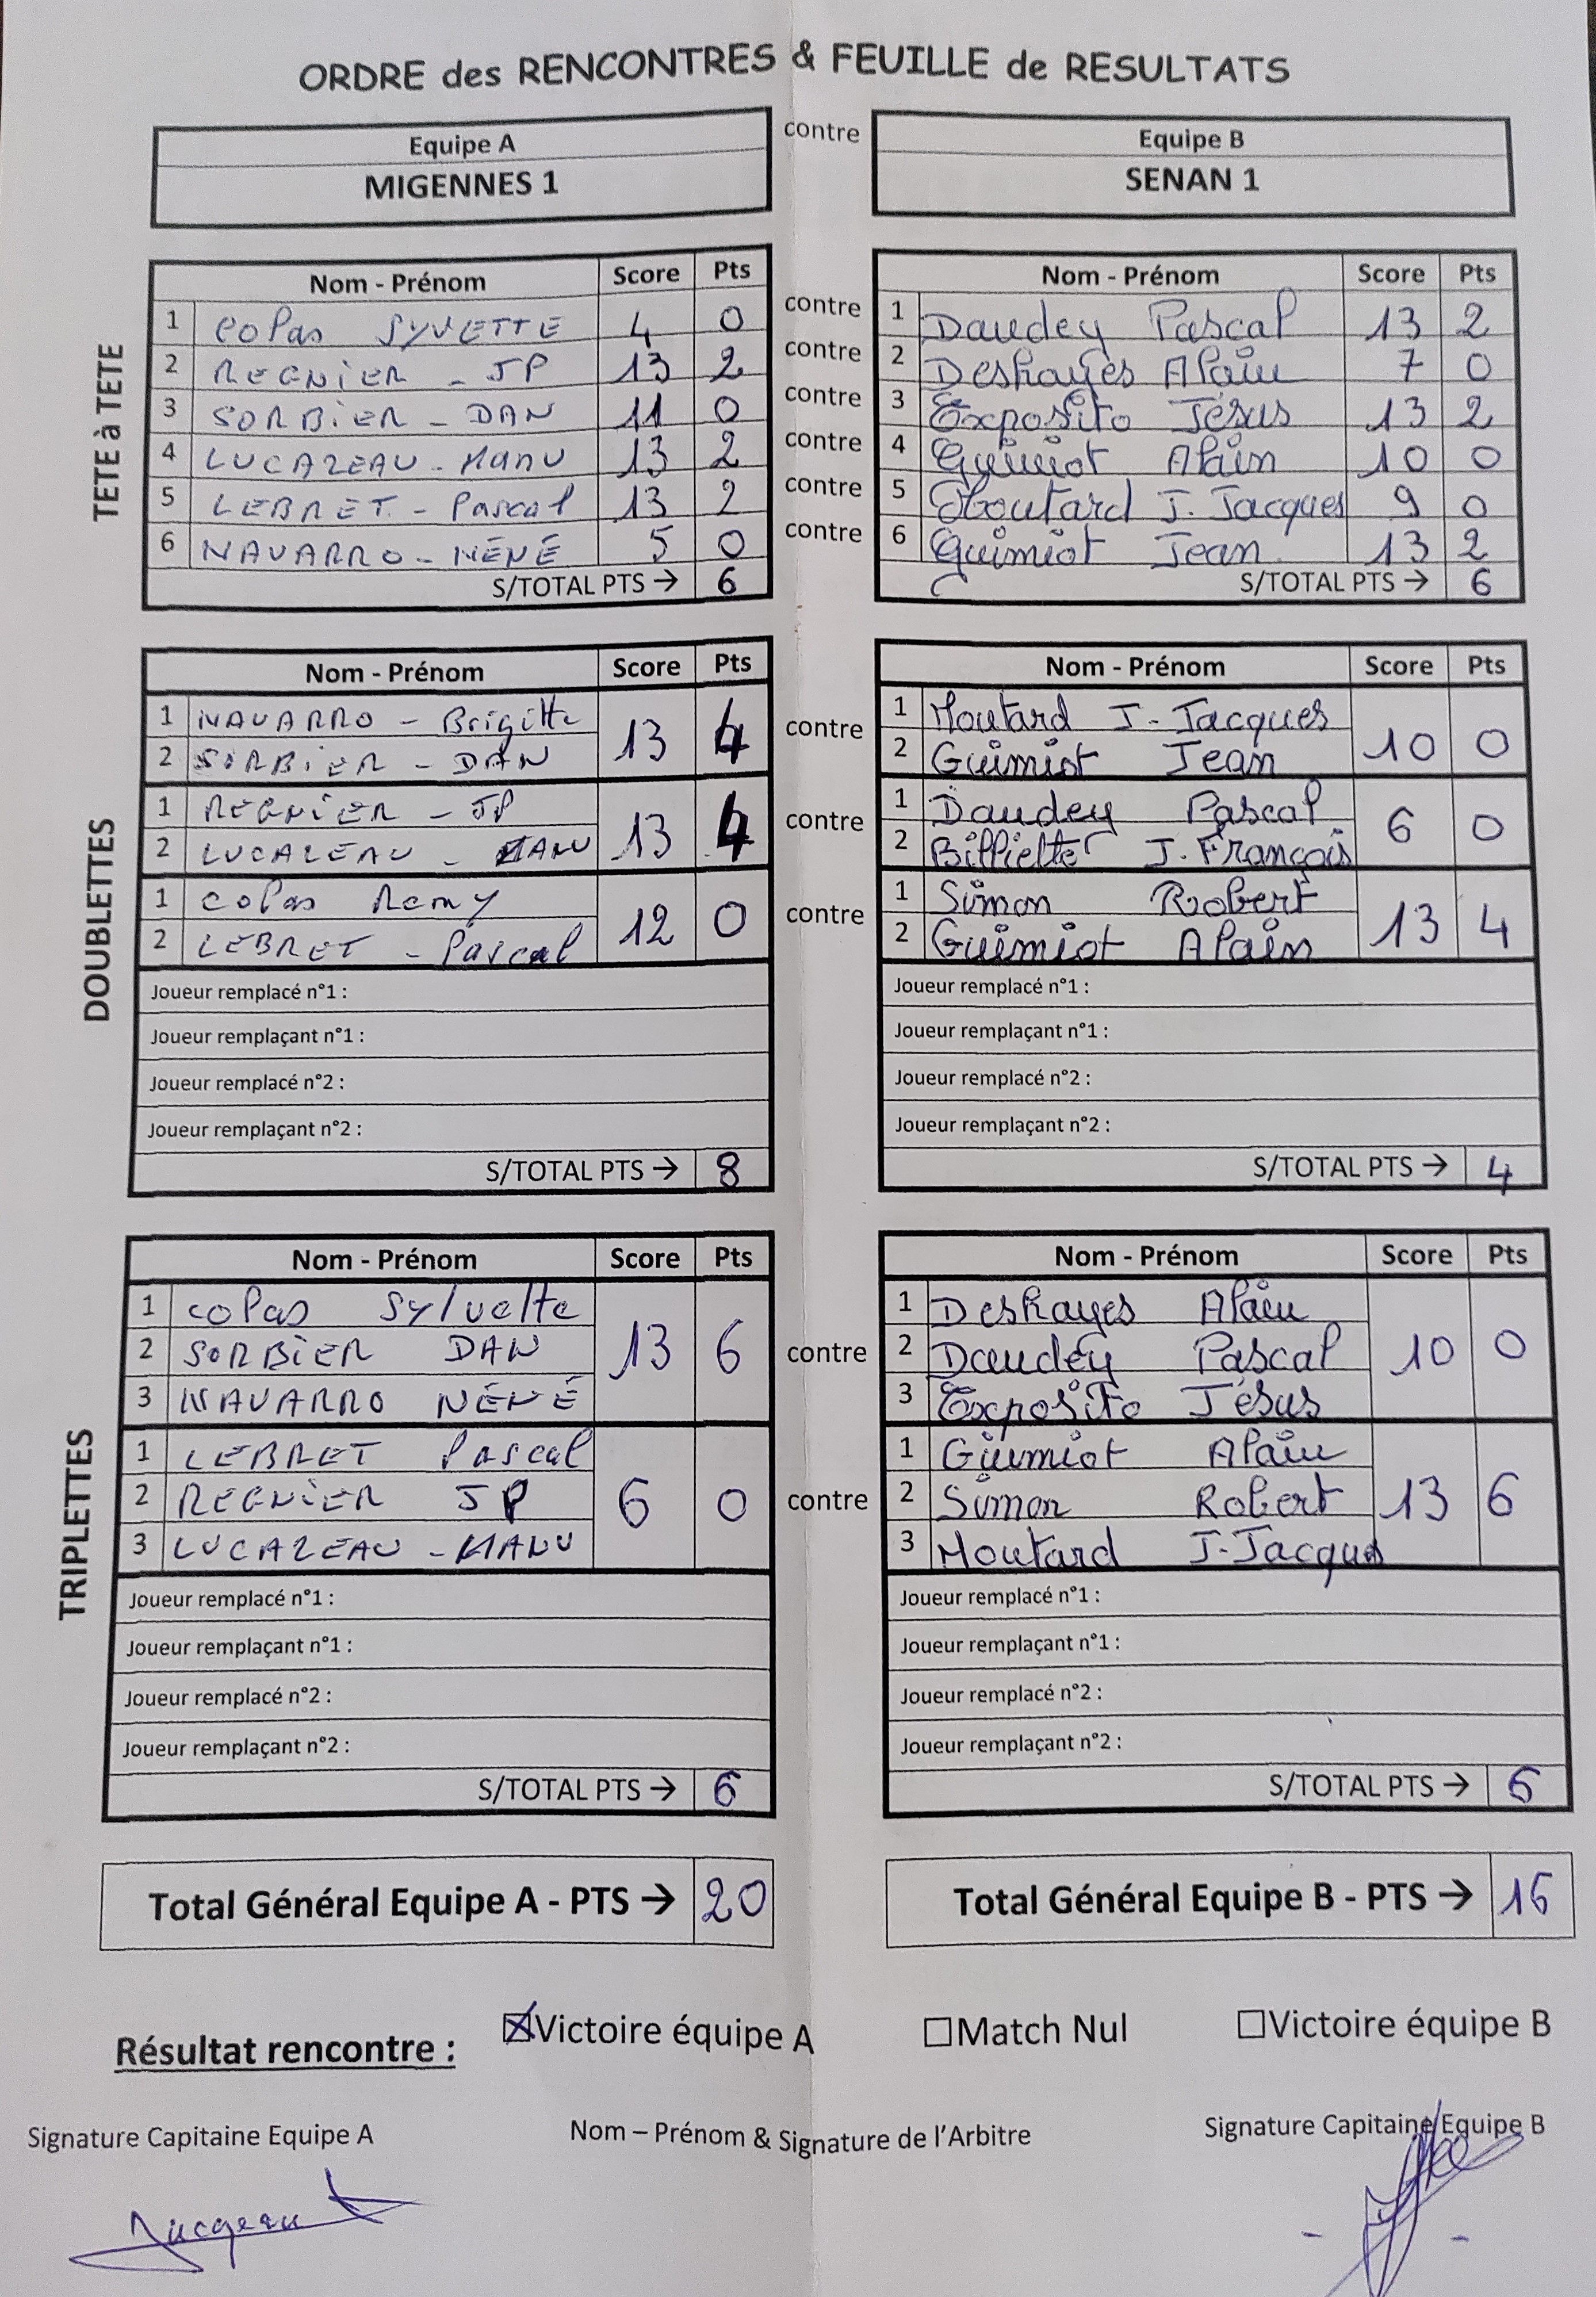 ORDRE des RENCONTRES & FEUILLE de RESULTATS
Equipe A contre Equipe B
MIGENNES 1 SENAN 1
TETE à TETE
Nom - Prénom Score Pts Nom - Prénom Score Pts
1 COPas SYVETTE 4 0 contre 1 Daudey Pascal 13 2
2 REGNIER - JP 13 2 contre 2 Deshayes Alain 7 0
3 SORBIER - DAN 11 0 contre 3 Exposito Jésus 13 2
4 LUCAZEAU - Manu 13 2 contre 4 Guimiot Alain 10 0
5 LEBRET - Pascal 13 2 contre 5 Moutard J. Jacques 9 0
6 NAVARRO - NÉNÉ 5 0 contre 6 Guimiot Jean 13 2
S/TOTAL PTS → 6 S/TOTAL PTS → 6
DOUBLETTES
Nom - Prénom Score Pts Nom - Prénom Score Pts
1 NAVARRO - Brigitte 13 4 contre 1 Moutard J - Jacques 10 0
2 SORBIER - DAN 2 Guimiot Jean
1 REGNIER - JP 13 4 contre 1 Daudey Pascal 6 0
2 LUCAZEAU - MANU 2 Billiette J. François
1 COPas Remy 12 0 contre 1 Simon Robert 13 4
2 LEBRET - Pascal 2 Guimiot Alain
Joueur remplacé n°1 : Joueur remplacé n°1 :
Joueur remplaçant n°1 : Joueur remplaçant n°1 :
Joueur remplacé n°2 : Joueur remplacé n°2 :
Joueur remplaçant n°2 : Joueur remplaçant n°2 :
S/TOTAL PTS → 8 S/TOTAL PTS → 4
TRIPLETTES
Nom - Prénom Score Pts Nom - Prénom Score Pts
1 COPas Sylvette 13 6 contre 1 Deshayes Alain 10 0
2 SORBIER DAN 2 Daudey Pascal
3 NAVARRO NÉNÉ 3 Exposito Jésus
1 LEBRET Pascal 6 0 contre 1 Guimiot Alain 13 6
2 REGNIER JP 2 Simon Robert
3 LUCAZEAU - MANU 3 Moutard J-Jacques
Joueur remplacé n°1 : Joueur remplacé n°1 :
Joueur remplaçant n°1 : Joueur remplaçant n°1 :
Joueur remplacé n°2 : Joueur remplacé n°2 :
Joueur remplaçant n°2 : Joueur remplaçant n°2 :
S/TOTAL PTS → 6 S/TOTAL PTS → 6
Total Général Equipe A - PTS → 20 Total Général Equipe B - PTS → 16
Résultat rencontre : ☒Victoire équipe A ☐Match Nul ☐Victoire équipe B
Signature Capitaine Equipe A Nom – Prénom & Signature de l'Arbitre Signature Capitaine Equipe B